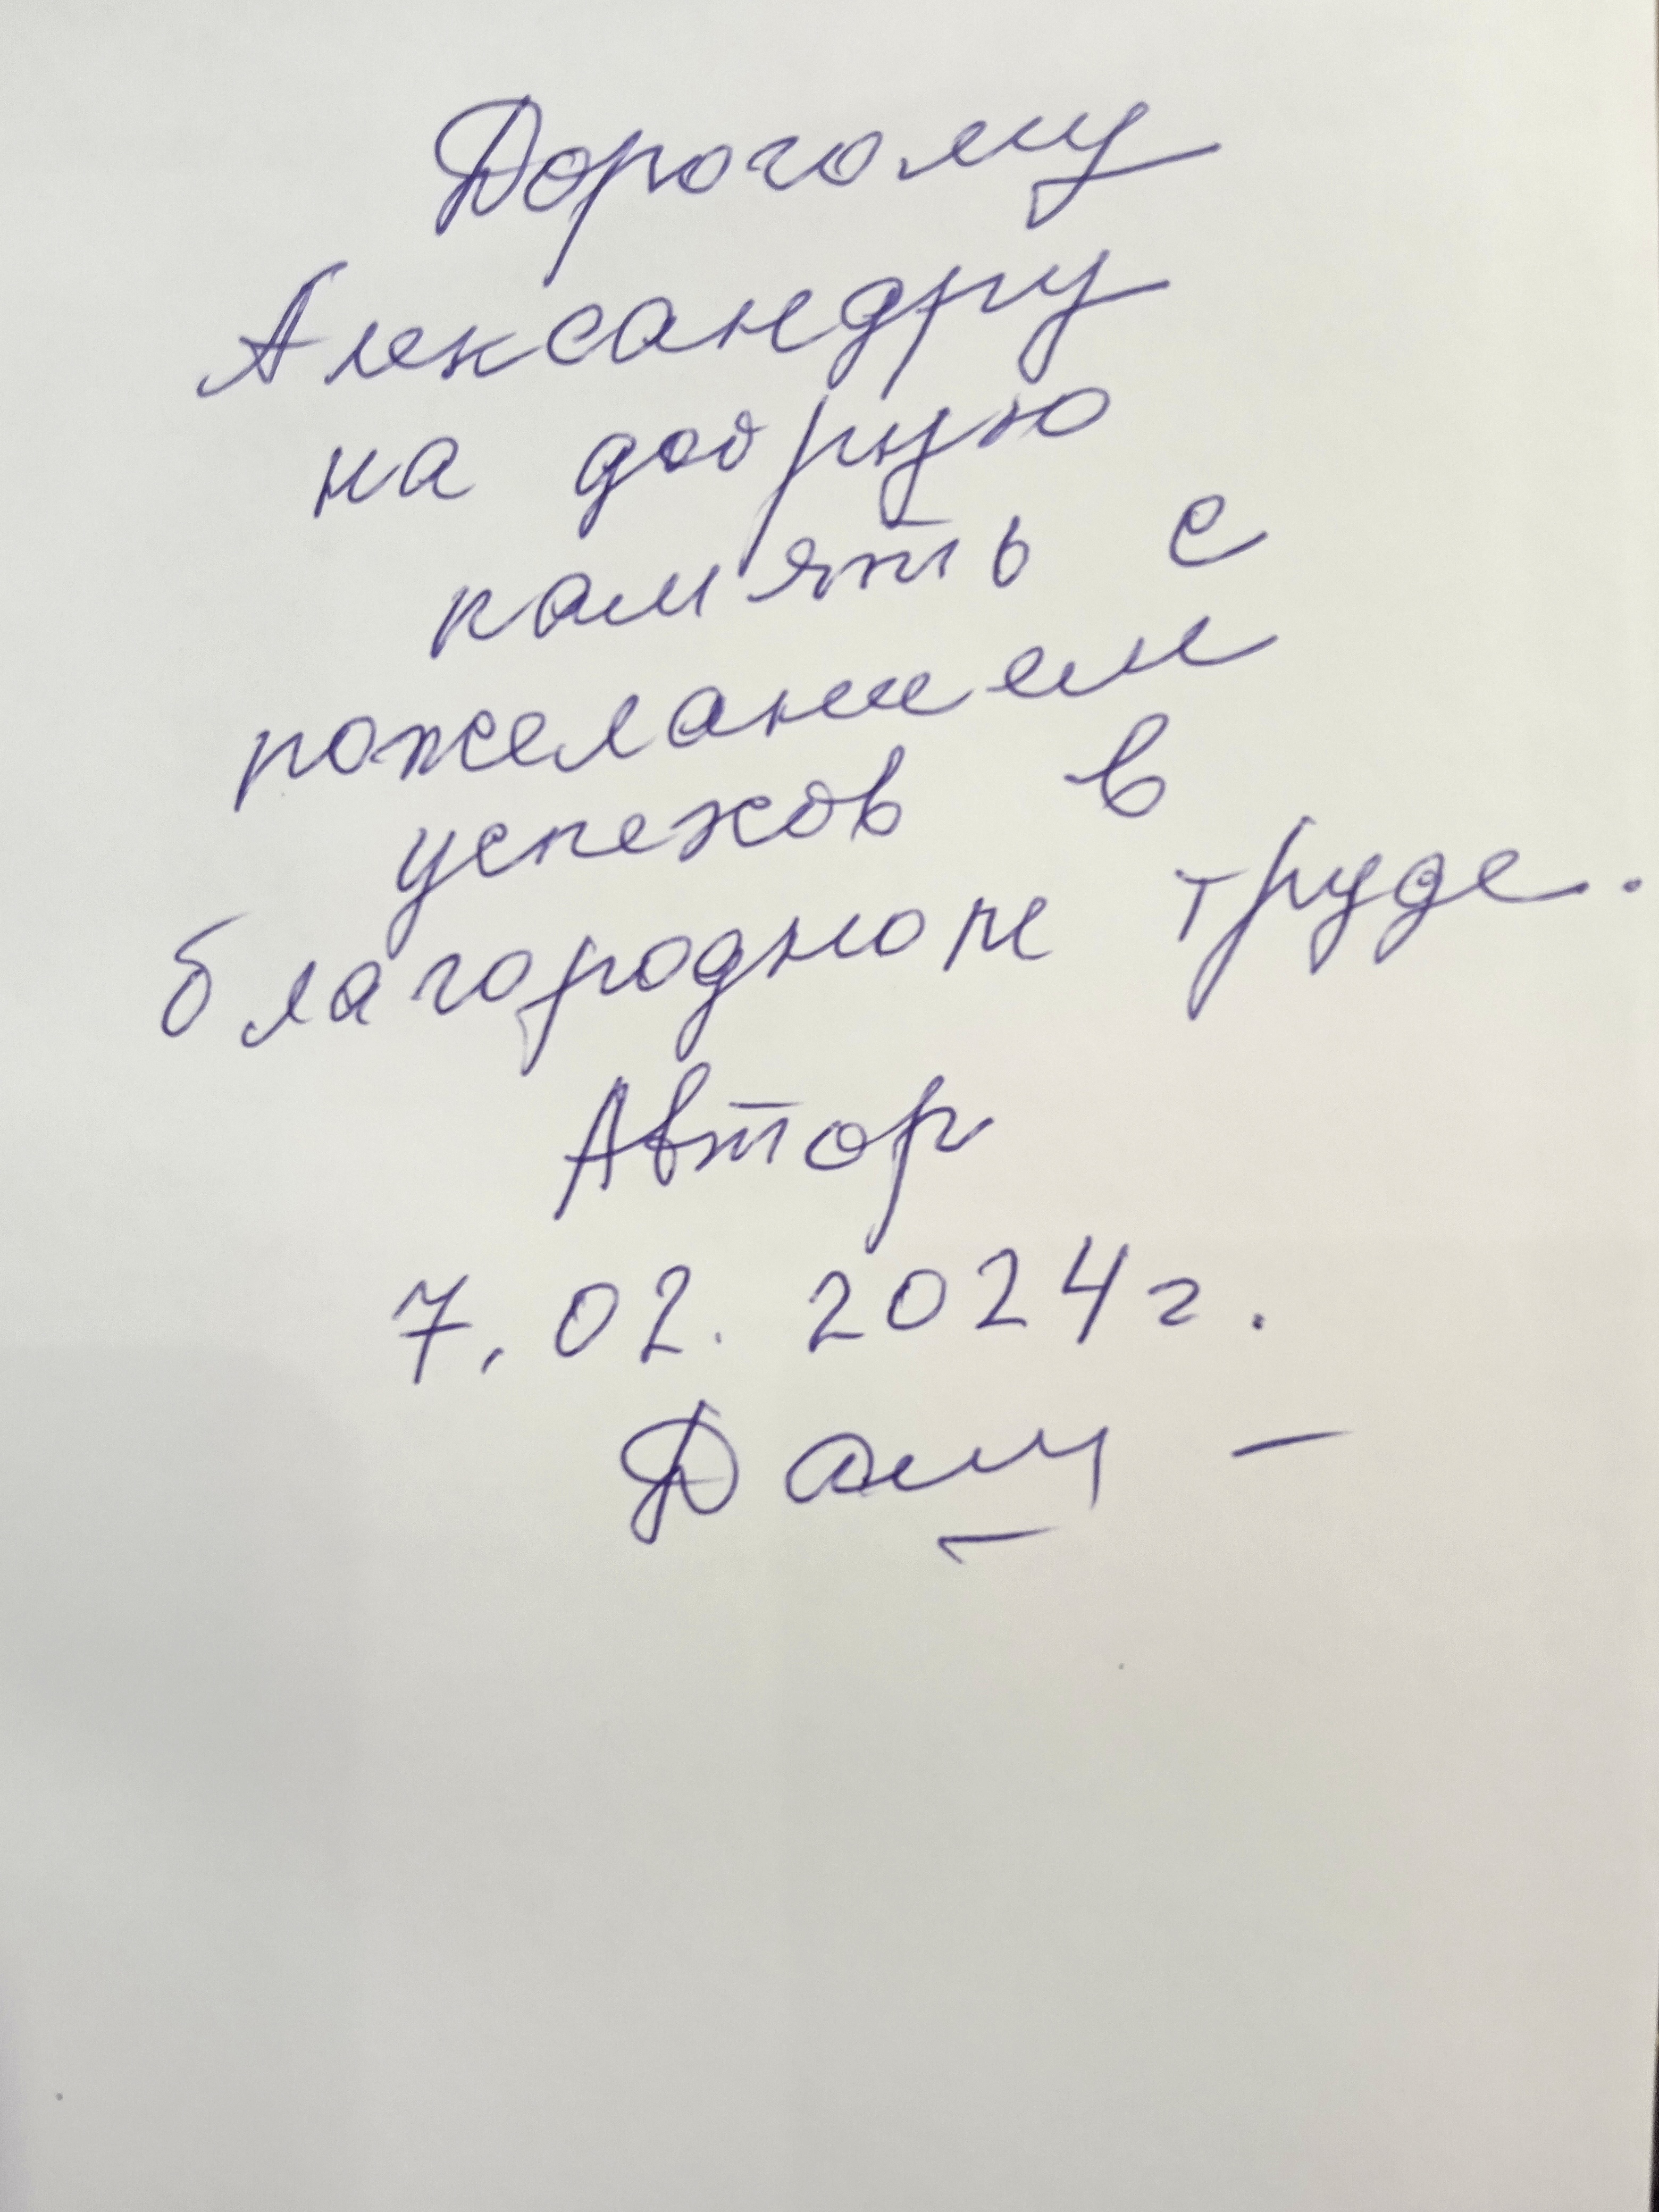 Дорогому
Александру
на добрую
память с
пожеланием
успехов в
благородном труде.
Автор
7.02.2024г.